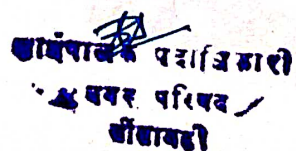 कार्यपालक पदाधिकारी
नगर परिषद
सीतामढ़ी